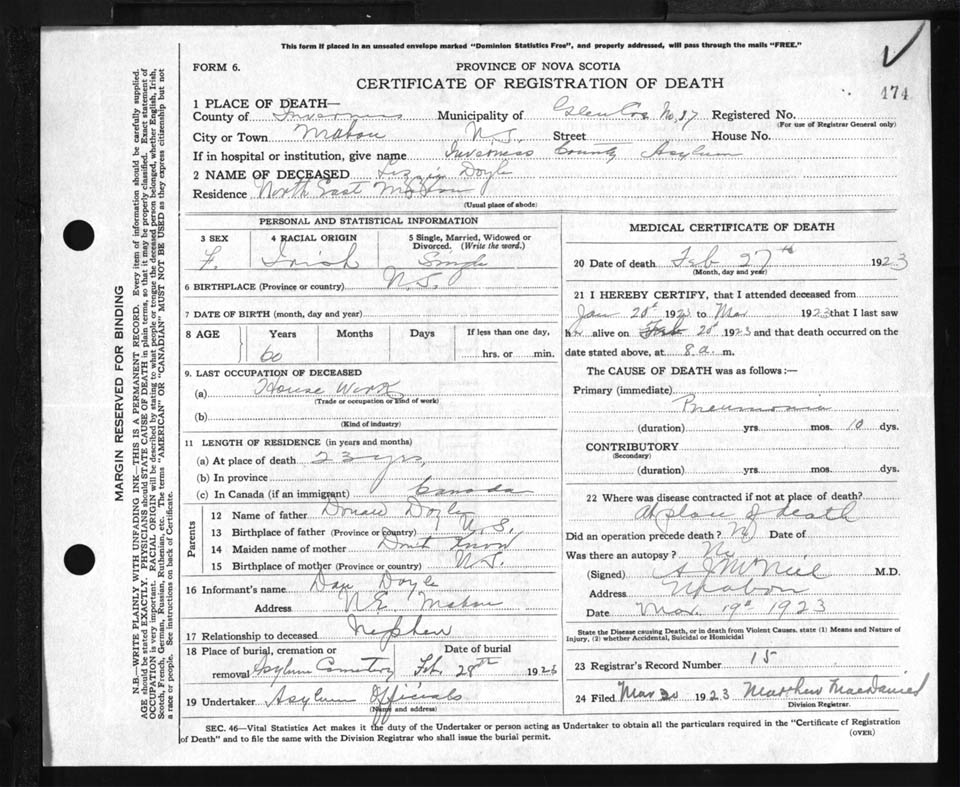 This form if placed in an unsealed envelope marked "Dominion Statistics Free", and properly addressed, will pass through the mails "FREE."
FORM 6.
PROVINCE OF NOVA SCOTIA
CERTIFICATE OF REGISTRATION OF DEATH
174
1 PLACE OF DEATH—
County of Inverness Municipality of Glencoe No. 37 Registered No.
(For use of Registrar General only)
City or Town Mabou N.S. Street House No.
If in hospital or institution, give name Inverness County Asylum
2 NAME OF DECEASED Lizzie Doyle
Residence North East Mabou
(Usual place of abode)
PERSONAL AND STATISTICAL INFORMATION
3 SEX 4 RACIAL ORIGIN 5 Single, Married, Widowed or Divorced. (Write the word.)
F. Irish Single
6 BIRTHPLACE (Province or country) N.S.
7 DATE OF BIRTH (month, day and year)
8 AGE Years Months Days If less than one day,
60 hrs. or min.
9. LAST OCCUPATION OF DECEASED
(a) House Work
(Trade or occupation or kind of work)
(b)
(Kind of industry)
11 LENGTH OF RESIDENCE (in years and months)
(a) At place of death 23 yrs,
(b) In province
(c) In Canada (if an immigrant) Canada
Parents
12 Name of father Donald Doyle
13 Birthplace of father (Province or country) N.S.
14 Maiden name of mother Don't Know
15 Birthplace of mother (Province or country) N.S.
16 Informant's name Dan Doyle
Address N.E. Mabou
17 Relationship to deceased Nephew
18 Place of burial, cremation or Date of burial
removal Asylum Cemetery Feb. 28th 1923
19 Undertaker Asylum Officials
(Name and address)
MEDICAL CERTIFICATE OF DEATH
20 Date of death Feb 27th 1923
(Month, day and year)
21 I HEREBY CERTIFY, that I attended deceased from
Jan 20th 1923 to Mar 1923 that I last saw
her alive on Feb 20th 1923 and that death occurred on the
date stated above, at 8 a. m.
The CAUSE OF DEATH was as follows:—
Primary (immediate)
Pneumonia
(duration) yrs. mos. 10 dys.
CONTRIBUTORY
(Secondary)
(duration) yrs. mos. dys.
22 Where was disease contracted if not at place of death?
At place of death
Did an operation precede death? No Date of
Was there an autopsy? No
(Signed) A J McNeil M.D.
Address Mabou
Date Mar. 19th 1923
State the Disease causing Death, or in death from Violent Causes, state (1) Means and Nature of
Injury, (2) whether Accidental, Suicidal or Homicidal
23 Registrar's Record Number 15
24 Filed Mar 20 1923 Matthew MacDaniel
Division Registrar.
SEC. 46—Vital Statistics Act makes it the duty of the Undertaker or person acting as Undertaker to obtain all the particulars required in the "Certificate of Registration
of Death" and to file the same with the Division Registrar who shall issue the burial permit.
(OVER)
MARGIN RESERVED FOR BINDING
N.B.—WRITE PLAINLY WITH UNFADING INK—THIS IS A PERMANENT RECORD. Every item of information should be carefully supplied.
AGE should be stated EXACTLY. PHYSICIANS should STATE CAUSE OF DEATH in plain terms, so that it may be properly classified. Exact statement of
OCCUPATION is very important. RACIAL ORIGIN will be described by stating to what people or tongue the deceased person belonged, whether English, Irish,
Scotch, French, German, Russian, Ruthenian, etc. The terms "AMERICAN" OR "CANADIAN" MUST NOT BE USED as they express citizenship but not
a race or people. See instructions on back of Certificate.